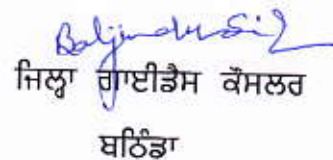 Baljinder Si
ਜਿਲ੍ਹਾ ਗਾਈਡੈਂਸ ਕੌਂਸਲਰ
ਬਠਿੰਡਾ